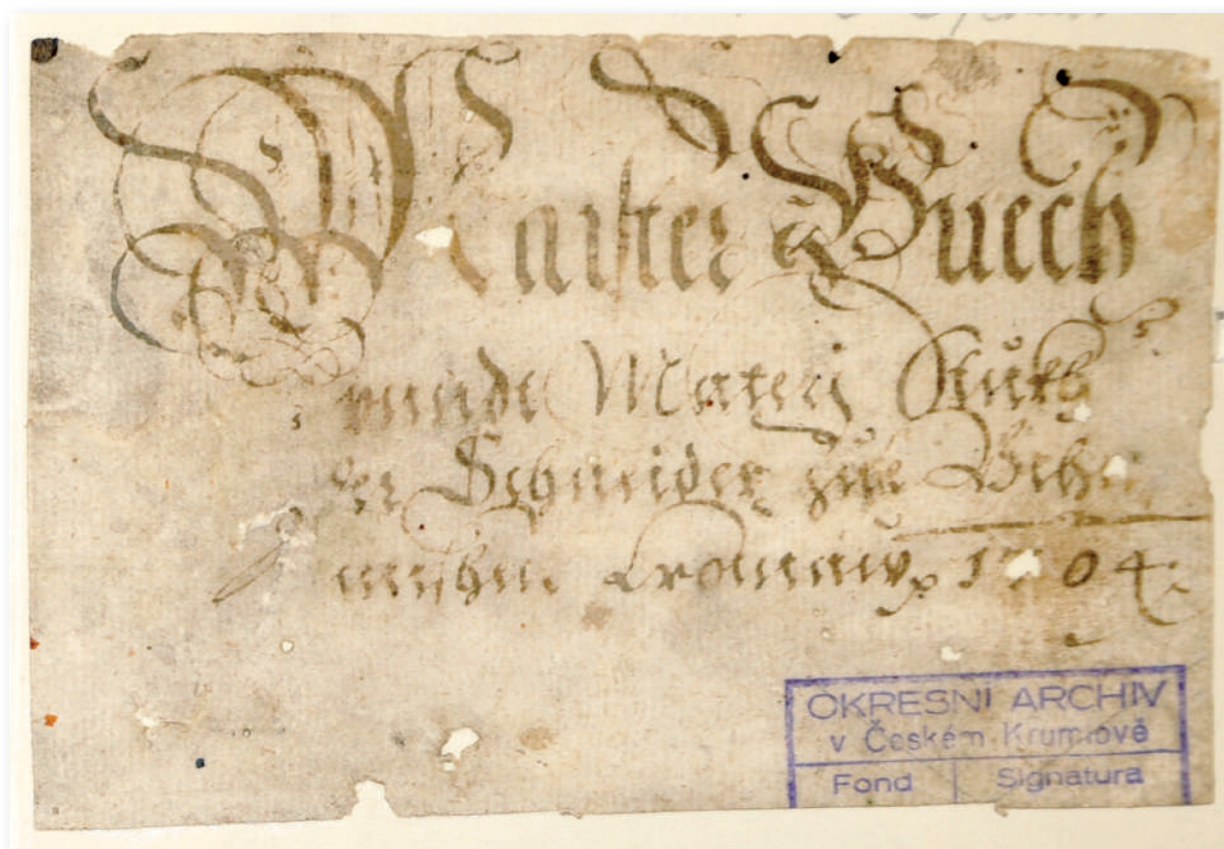 Maister Buech
vnndt Materj Stukh
der Schneider zue Behm
Cromaw 1704
OKRESNÍ ARCHIV
v Českém Krumlově
Fond Signatura